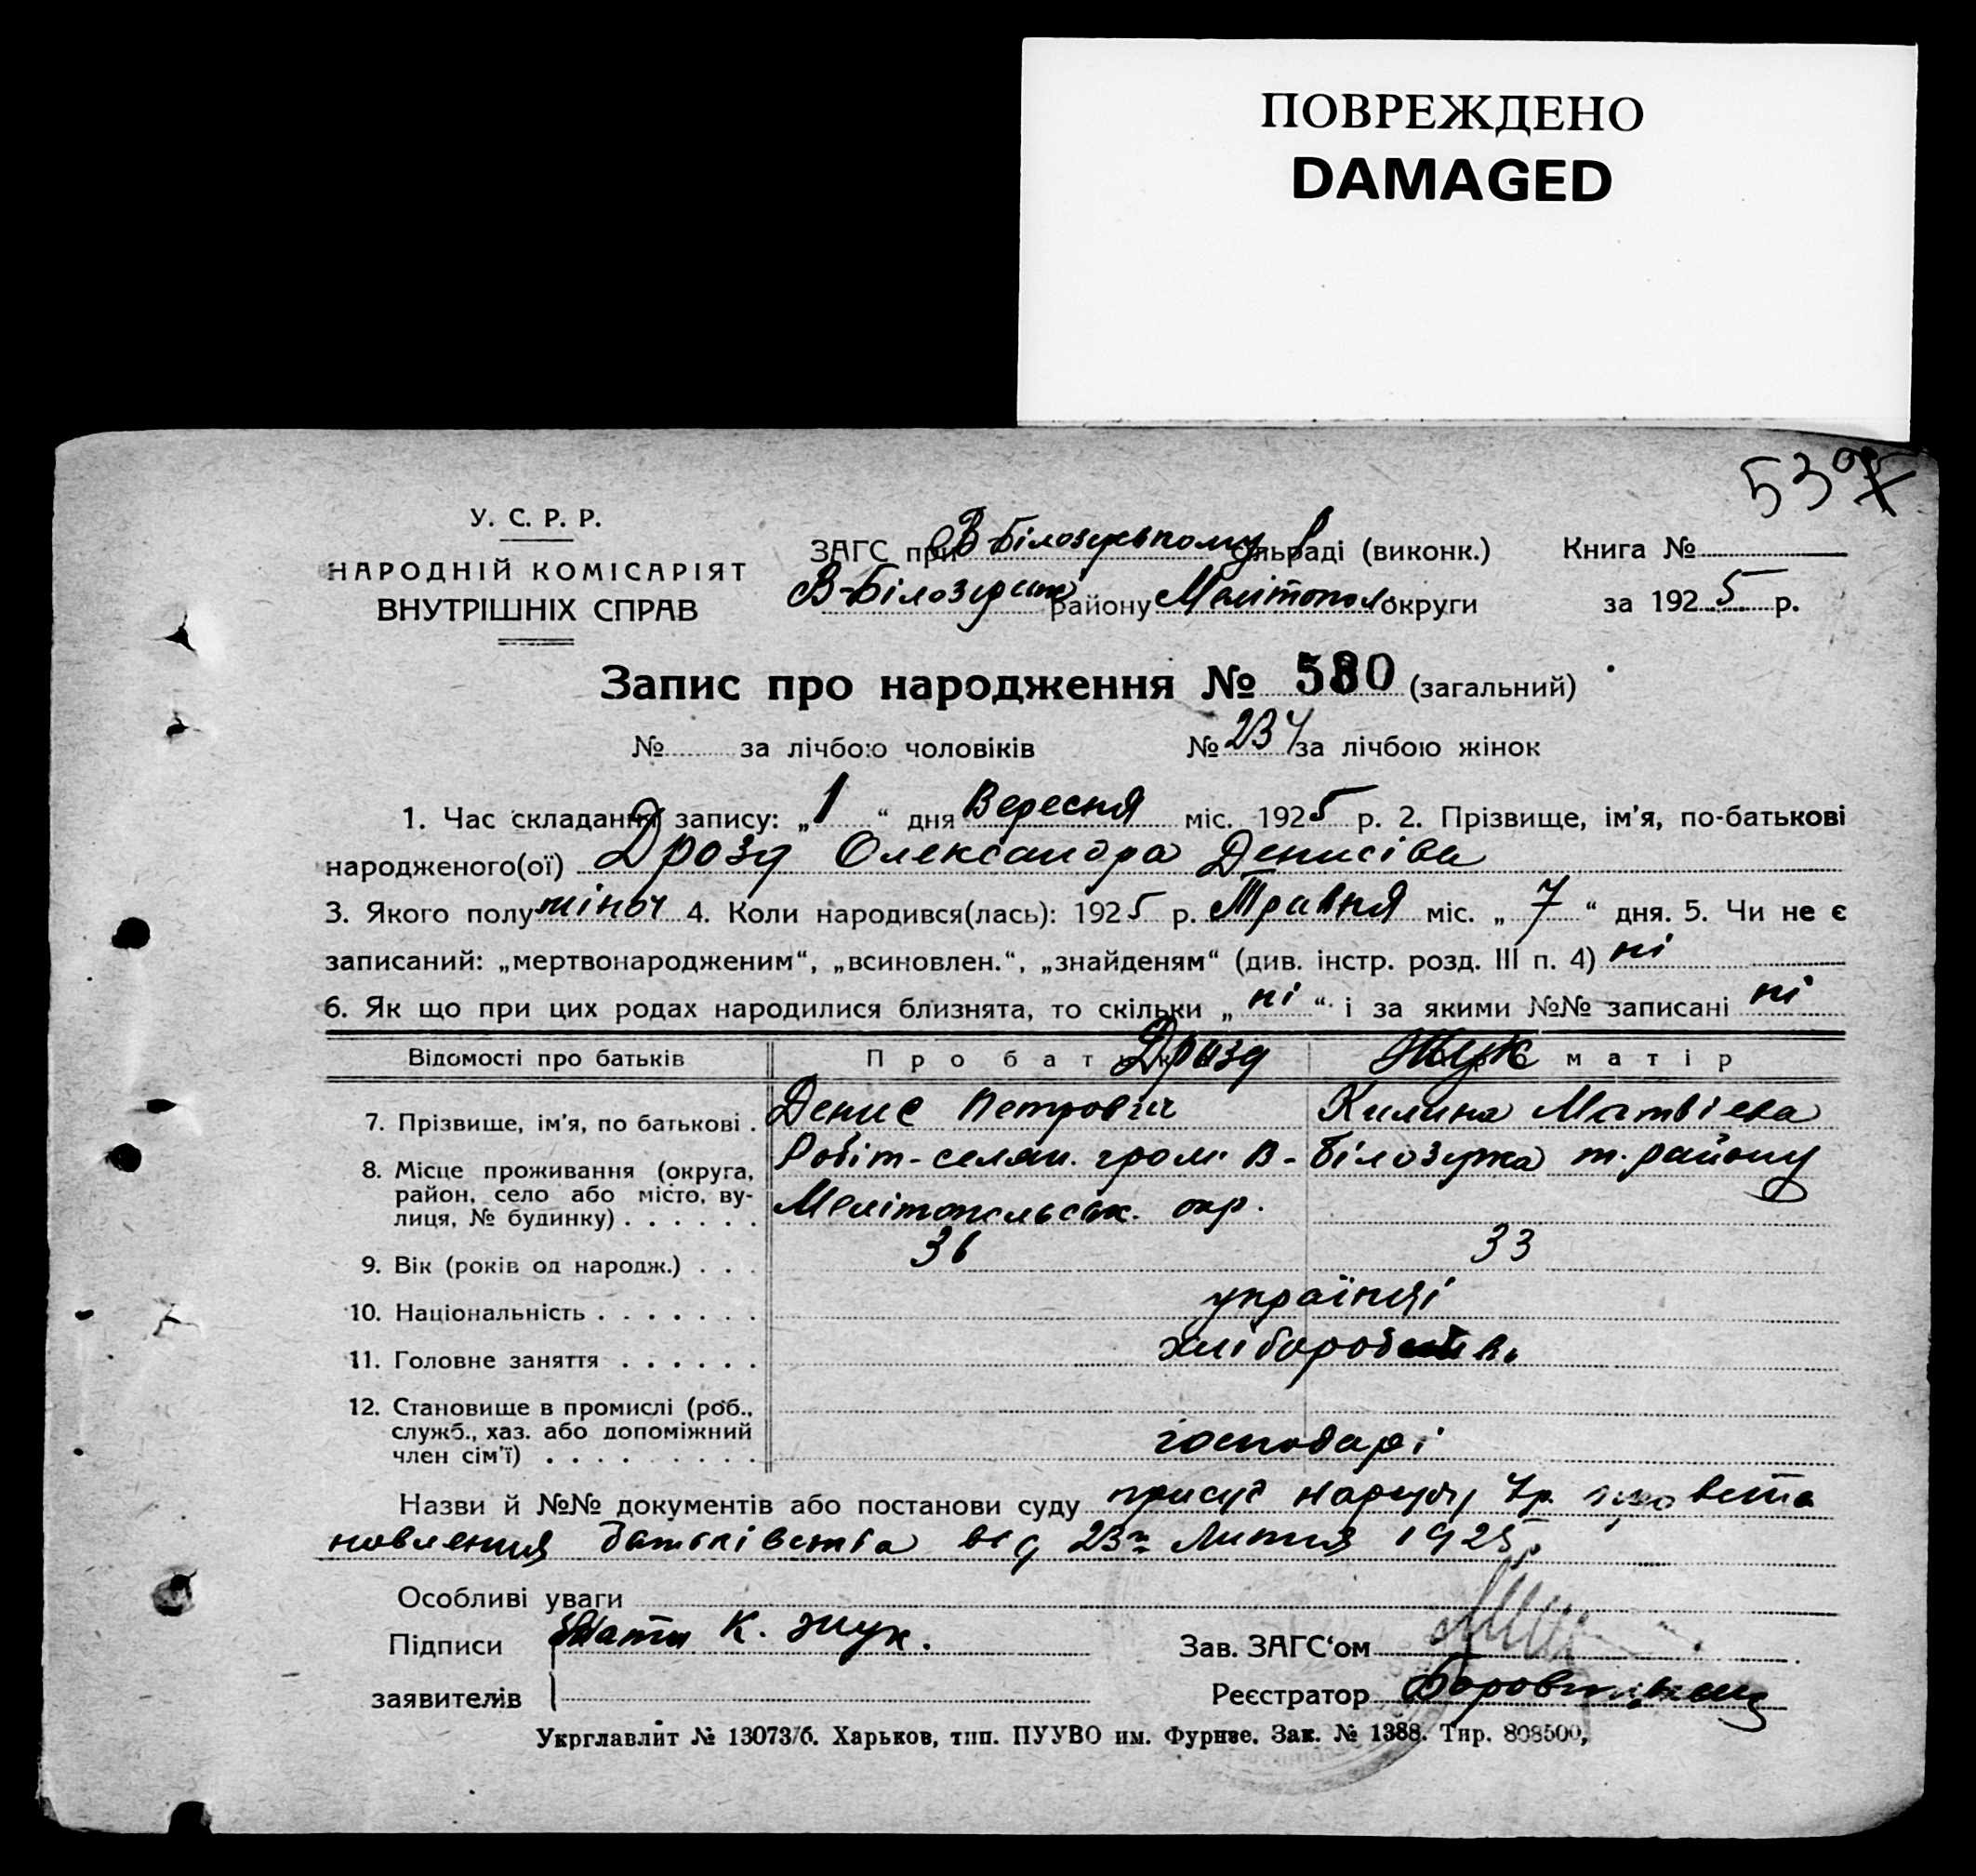 ПОВРЕЖДЕНО
DAMAGED
У. С. Р. Р.
НАРОДНІЙ КОМІСАРІЯТ
ВНУТРІШНІХ СПРАВ
ЗАГС при В-Білозерському сільраді (виконк.) Книга №
В-Білозерськ району Мелітопол округи за 1925 р.
Запис про народження № 580 (загальний)
№ за лічбою чоловіків № 234 за лічбою жінок
1. Час складання запису: „1“ дня Вересня міс. 1925 р. 2. Прізвище, ім'я, по-батькові
народженого(ої) Дрозд Олександра Денисіва
3. Якого полу жіноч 4. Коли народився(лась): 1925 р. Травня міс. „7“ дня. 5. Чи не є
записаний: „мертвонародженим“, „всиновлен.“, „знайденям“ (див. інстр. розд. III п. 4) ні
6. Як що при цих родах народилися близнята, то скільки „ні“ і за якими №№ записані ні
Відомості про батьків Про батька Дрозд Жук матір
7. Прізвище, ім'я, по батькові . Денис Петрович Килина Матвієва
8. Місце проживання (округа, Робіт-селян. гром. В-Білозерка т. району
район, село або місто, ву-
лиця, № будинку) . . . . . . Мелітопольськ. окр.
9. Вік (років од народж.) . . . 36 33
10. Національність . . . . . . . українці
11. Головне заняття . . . . . .
12. Становище в промислі (роб.,
служб., хаз. або допоміжний
член сім'ї) . . . . . . . . . господарі
Назви й №№ документів або постанови суду присуд
новлення батьківства від 23 Лютня 1925 р.
Особливі уваги
Підписи Мати К. Жук.
Зав. ЗАГС'ом
заявителів
Реєстратор
Укрглавлит № 13073/б. Харьков, тип. ПУУВО им. Фурнзе. Зак. № 1388. Тир. 808500,